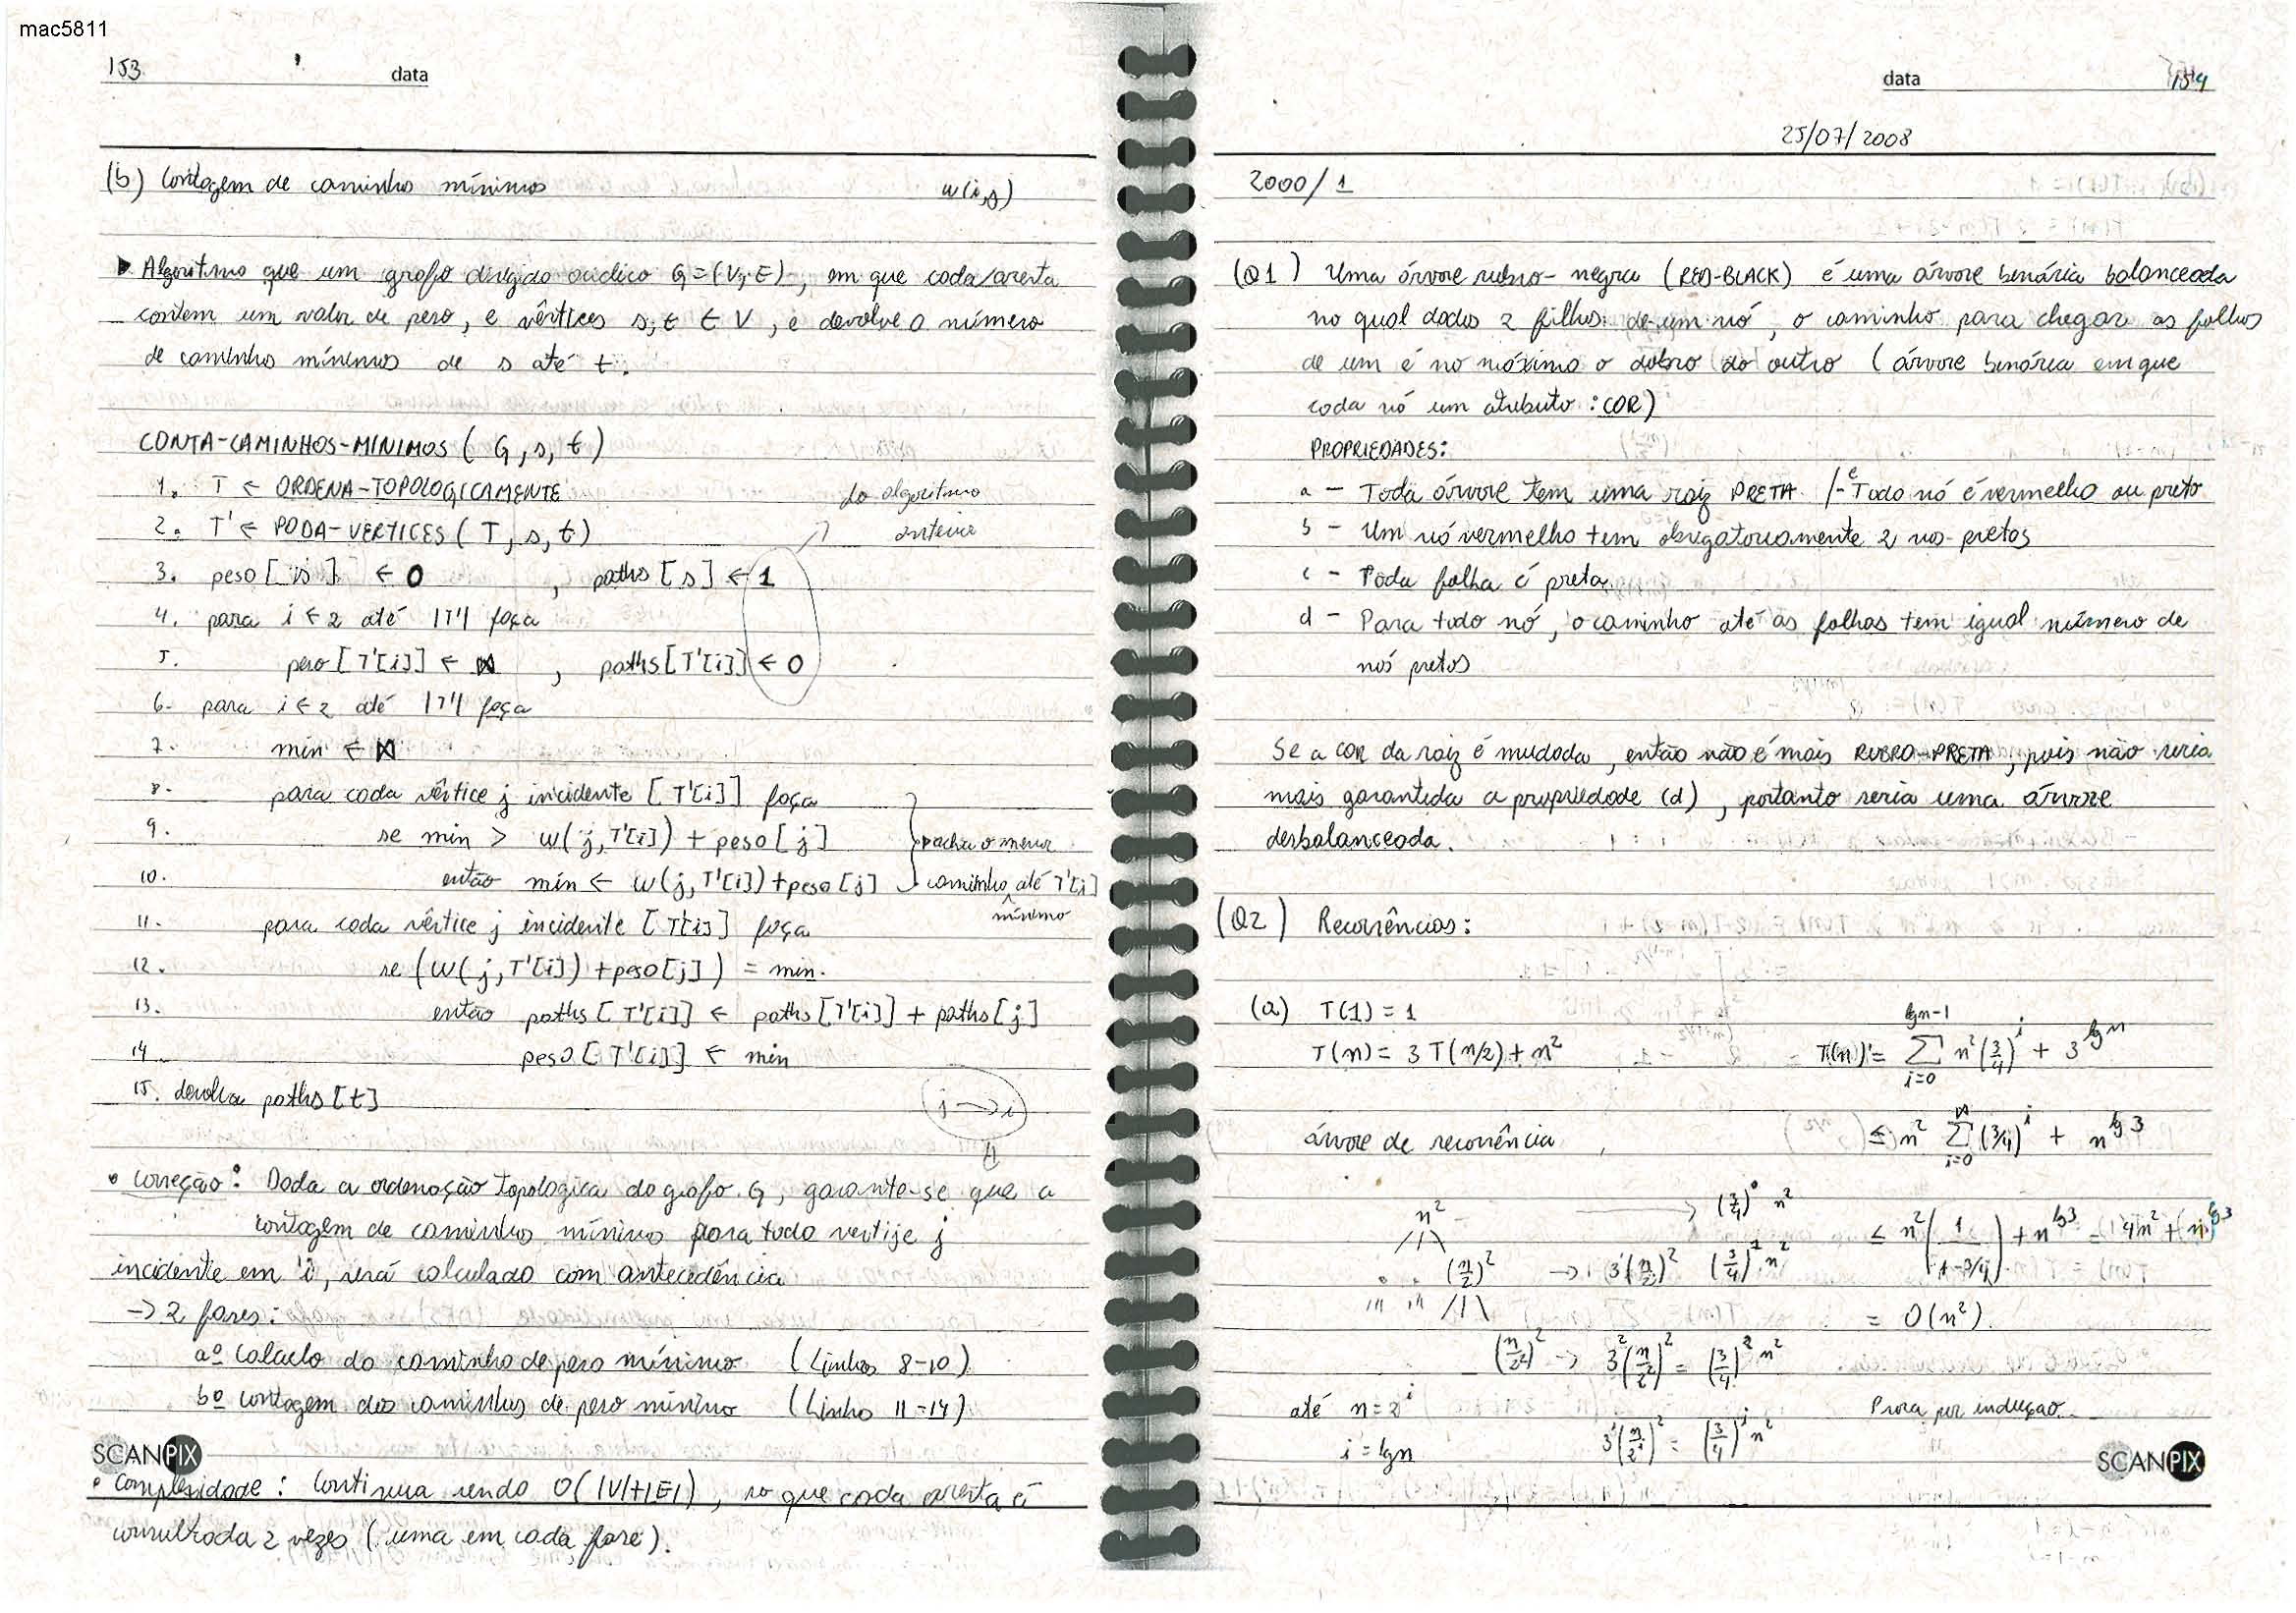 mac5811
153 data
(b) Contagem de caminhos mínimos w(i,j)
▶ Algoritmo que um grafo dirigido acíclico G=(V,E), em que cada aresta
contem um valor de peso, e vértices s,t ∈ V, e devolve o número
de caminhos mínimos de s até t.
CONTA-CAMINHOS-MINIMOS (G, s, t)
1. T ← ORDENA-TOPOLOGICAMENTE
2. T' ← PODA-VERTICES (T, s, t)
do algoritmo
anterior
3. peso[s] ← 0 , paths[s] ← 1
4. para i ← 2 até |T'| faça
5. peso[T'[i]] ← ∞ , paths[T'[i]] ← 0
6. para i ← 2 até |T'| faça
7. min ← ∞
8. para cada vértice j incidente [T'[i]] faça
9. se min > w(j, T'[i]) + peso[j]
10. então min ← w(j, T'[i]) + peso[j]
acha o menor
caminho até T'[i]
mínimo
11. para cada vértice j incidente [T'[i]] faça
12. se (w(j, T'[i]) + peso[j]) = min
13. então paths[T'[i]] ← paths[T'[i]] + paths[j]
14 peso[T'[i]] ← min
15. devolva paths[t]
j → i
• Correção: Dada a ordenação topologica do grafo G, garante-se que a
contagem de caminhos mínimos para todo vertije j
incidente em i, será calculado com antecedência
→ 2 fases:
aº Calculo do caminho de peso mínimo (Linhas 8-10)
bº contagem dos caminhos de peso mínimo (Linha 11-14)
SCANPIX
• Complexidade: Continua sendo O(|V|+|E|), so que cada aresta é
consultada 2 vezes (uma em cada fase).
data 154
25/07/2008
2000/1
(Q1) Uma árvore rubro-negra (RED-BLACK) é uma árvore binária balanceada
no qual dados 2 filhos de um nó, o caminho para chegar as folhas
de um é no máximo o dobro do outro (árvore binária em que
cada nó um atributo: COR)
PROPRIEDADES:
a - Toda árvore tem uma raiz PRETA /-e Todo nó é vermelho ou preto
b - Um nó vermelho tem obrigatoriamente 2 nos pretos
c - Toda folha é preta
d - Para todo nó, o caminho até as folhas tem igual número de
nós pretos
Se a cor da raiz é mudada, então não é mais RUBRO-PRETA, pois não seria
mais garantida a propriedade (d), portanto seria uma árvore
desbalanceada.
(Q2) Recorrências:
(a) T(1) = 1
T(n) = 3T(n/2) + n² T(n) = ∑_{i=0}^{lgn-1} n²(3/4)^i + 3^{lgn}
árvore de recorrência ≤ n² ∑_{i=0}^{∞} (3/4)^i + n^{lg3}
n² → (3/4)^0 n²
≤ n²(1/(1-3/4)) + n^{lg3} = 4n² + n^{lg3}
(n/2)² → 3(n/2)² (3/4)^1 n²
= O(n²).
(n/2²)² → 3²(n/2²)² = (3/4)² n²
até n = 2^i Prova por indução
i = lgn 3^i(n/2^i)² = (3/4)^i n²
SCANPIX